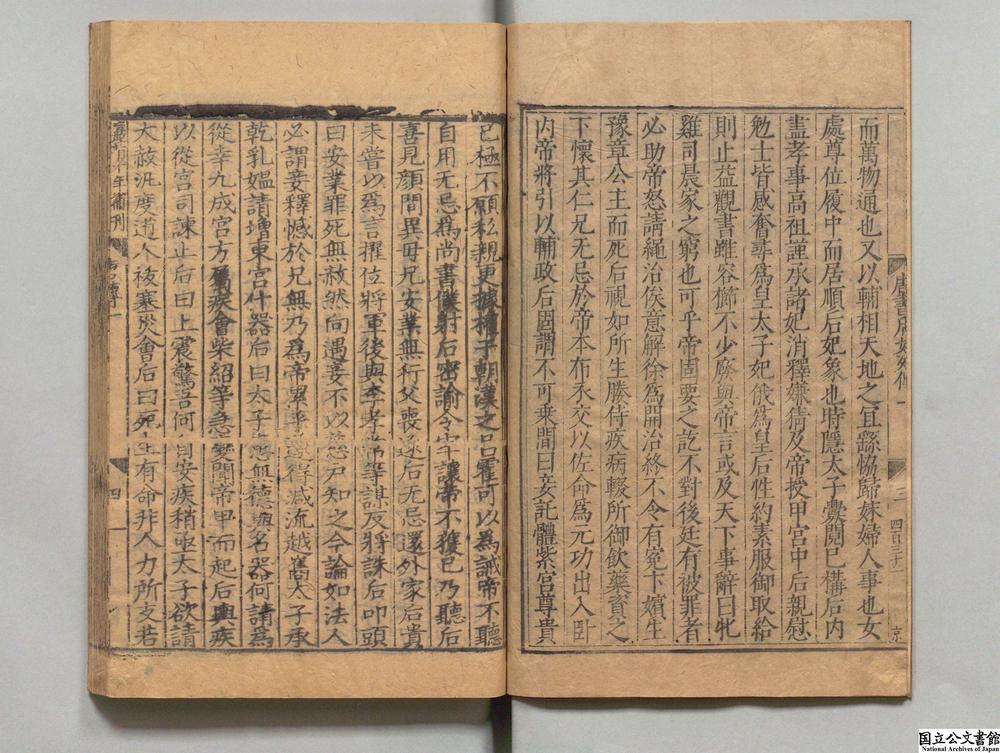 而萬物通也又以輔相天地之宜繇恊歸妹婦人事也女
處尊位履中而居順后妃象也時隱太子舋鬩已構后内
盡孝事高祖謹承諸妃消釋嫌猜及帝授甲宫中后親慰
勉士皆感奮尋為皇太子妃俄為皇后性約素服御取給
則止益觀書雖容櫛不少廢與帝言或及天下事辭曰牝
雞司晨家之窮也可乎帝固要之訖不對後廷有被罪者
必助帝怒請繩治俟意解徐為開治終不令有寃下嬪生
豫章公主而死后視如所生媵侍疾病輟所御飲藥資之
下懷其仁兄无忌於帝本布衣交以佐命為元功出入卧
内帝將引以輔政后固謂不可乘間曰妾託體紫宫尊貴
唐書后妃列傳一
三
四百三十二
京
已極不願私親更據權于朝漢之吕霍可以為誡帝不聽
自用无忌為尚書僕射后密諭令牢讓帝不獲已乃聽后
喜見顔間異母兄安業無行父喪逐后无忌還外家后貴
未嘗以為言擢位將軍後與李孝常等謀反將誅后叩頭
曰安業罪死無赦然向遇妾不以慈户知之今論如法人
必謂妾釋憾於兄無乃為帝累乎遂得减流越嶲太子承
乾乳媪請增東宫什器后曰太子患無德與名器何請為
從幸九成宫方屬疾會柴紹等急變聞帝甲而起后輿疾
以從宫司諫止后曰上震驚吾何自安疾稍亟太子欲請
大赦汎度道人祓塞災會后曰死生有命非人力所支若
年補刊
傳一
四
国立公文書館
National Archives of Japan